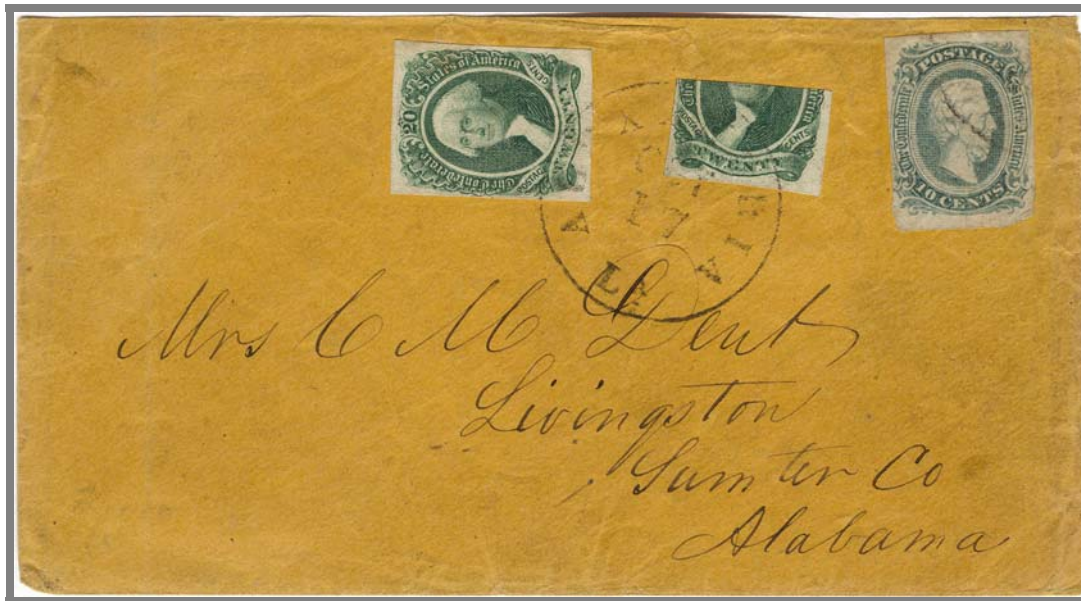 20 The Confederate States of America CENTS
TWENTY
The
TWENTY
CENTS
POSTAGE
The Confederate States of America
10 CENTS
17
LA
Mrs C M Dent
Livingston
Sumter Co
Alabama